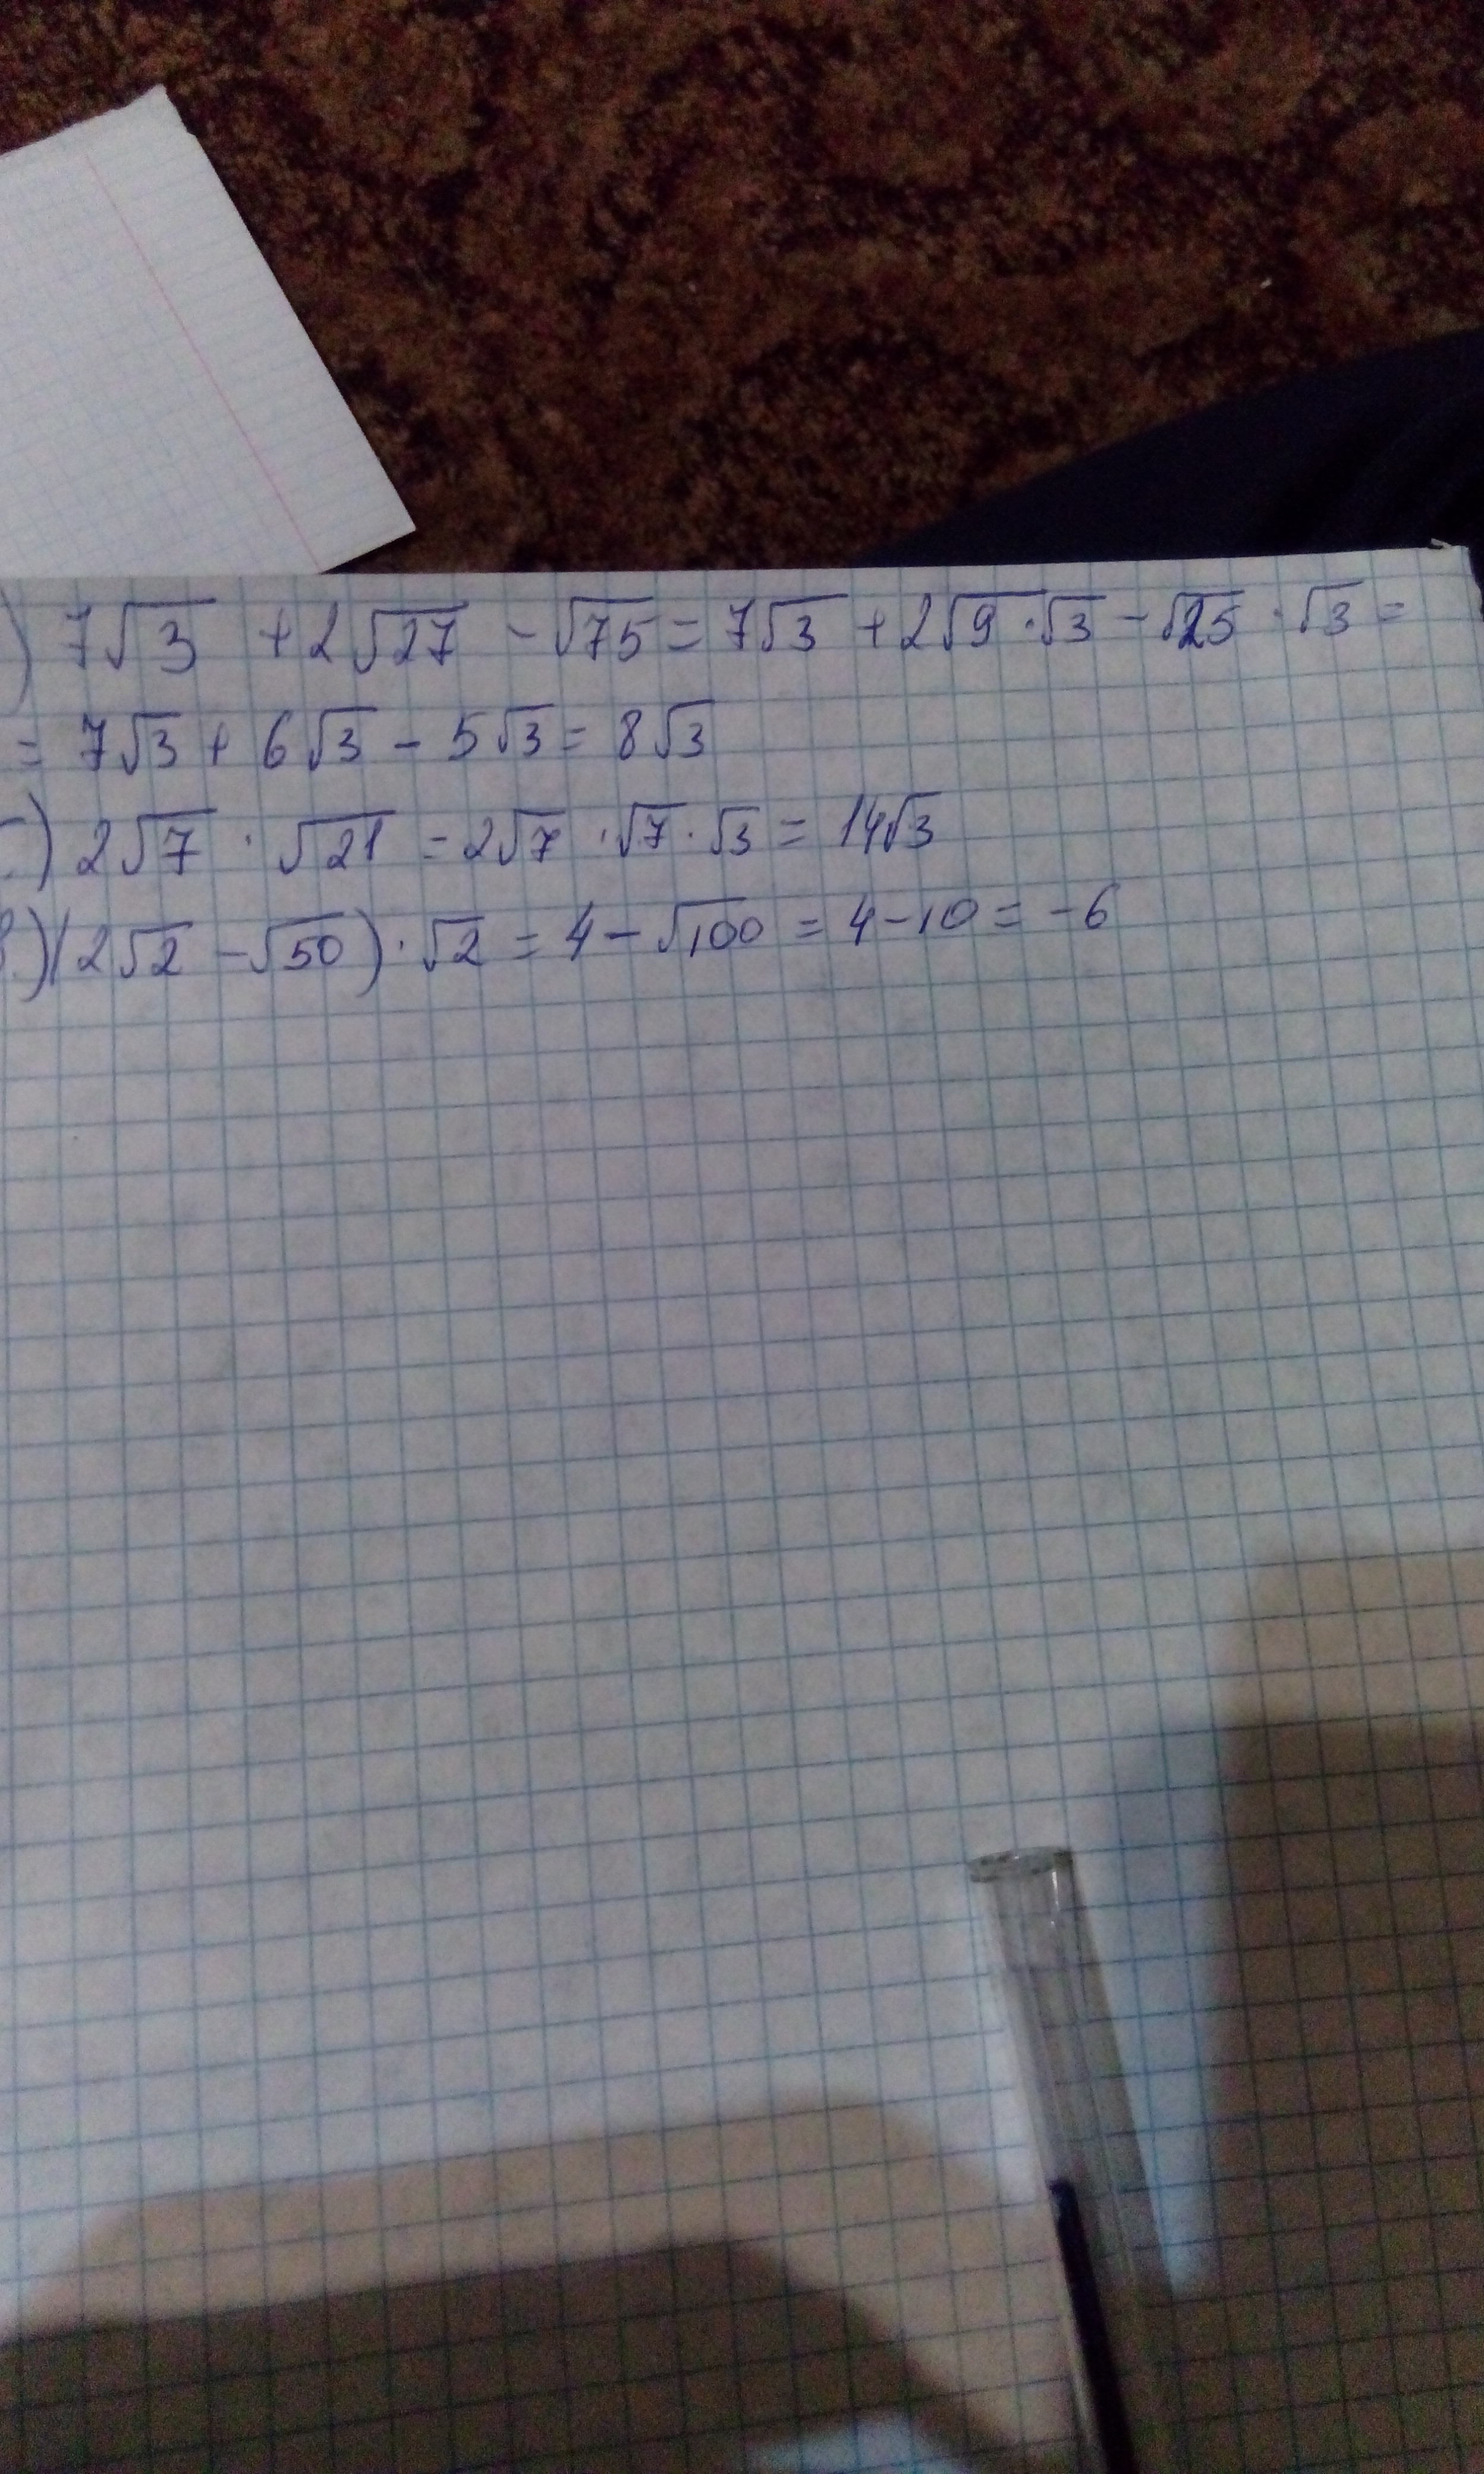 ) 7√3 + 2√27 - √75 = 7√3 + 2√9 · √3 - √25 · √3 =
= 7√3 + 6√3 - 5√3 = 8√3
) 2√7 · √21 = 2√7 · √7 · √3 = 14√3
) (2√2 - √50) · √2 = 4 - √100 = 4 - 10 = -6